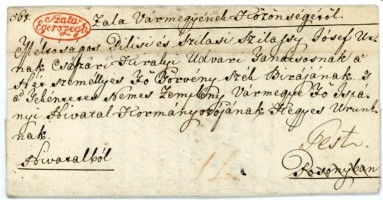 Szala Egerszegh
Zala Vármegyének Közönségéről.
Méltóságos Pilisi és Szilasi Szilassy József Ur-
nak Császári Királyi Udvari Tanátsosnak a
Hét személlyes Fő Törvény Szék Birájának, s
a Tekéntetes Nemes Zemplény Vármegye Fő Ispá-
nyi Hivatal Kormányozójának Kegyes Urunk-
nak.
Pest.
Hivatalból
Posonyban